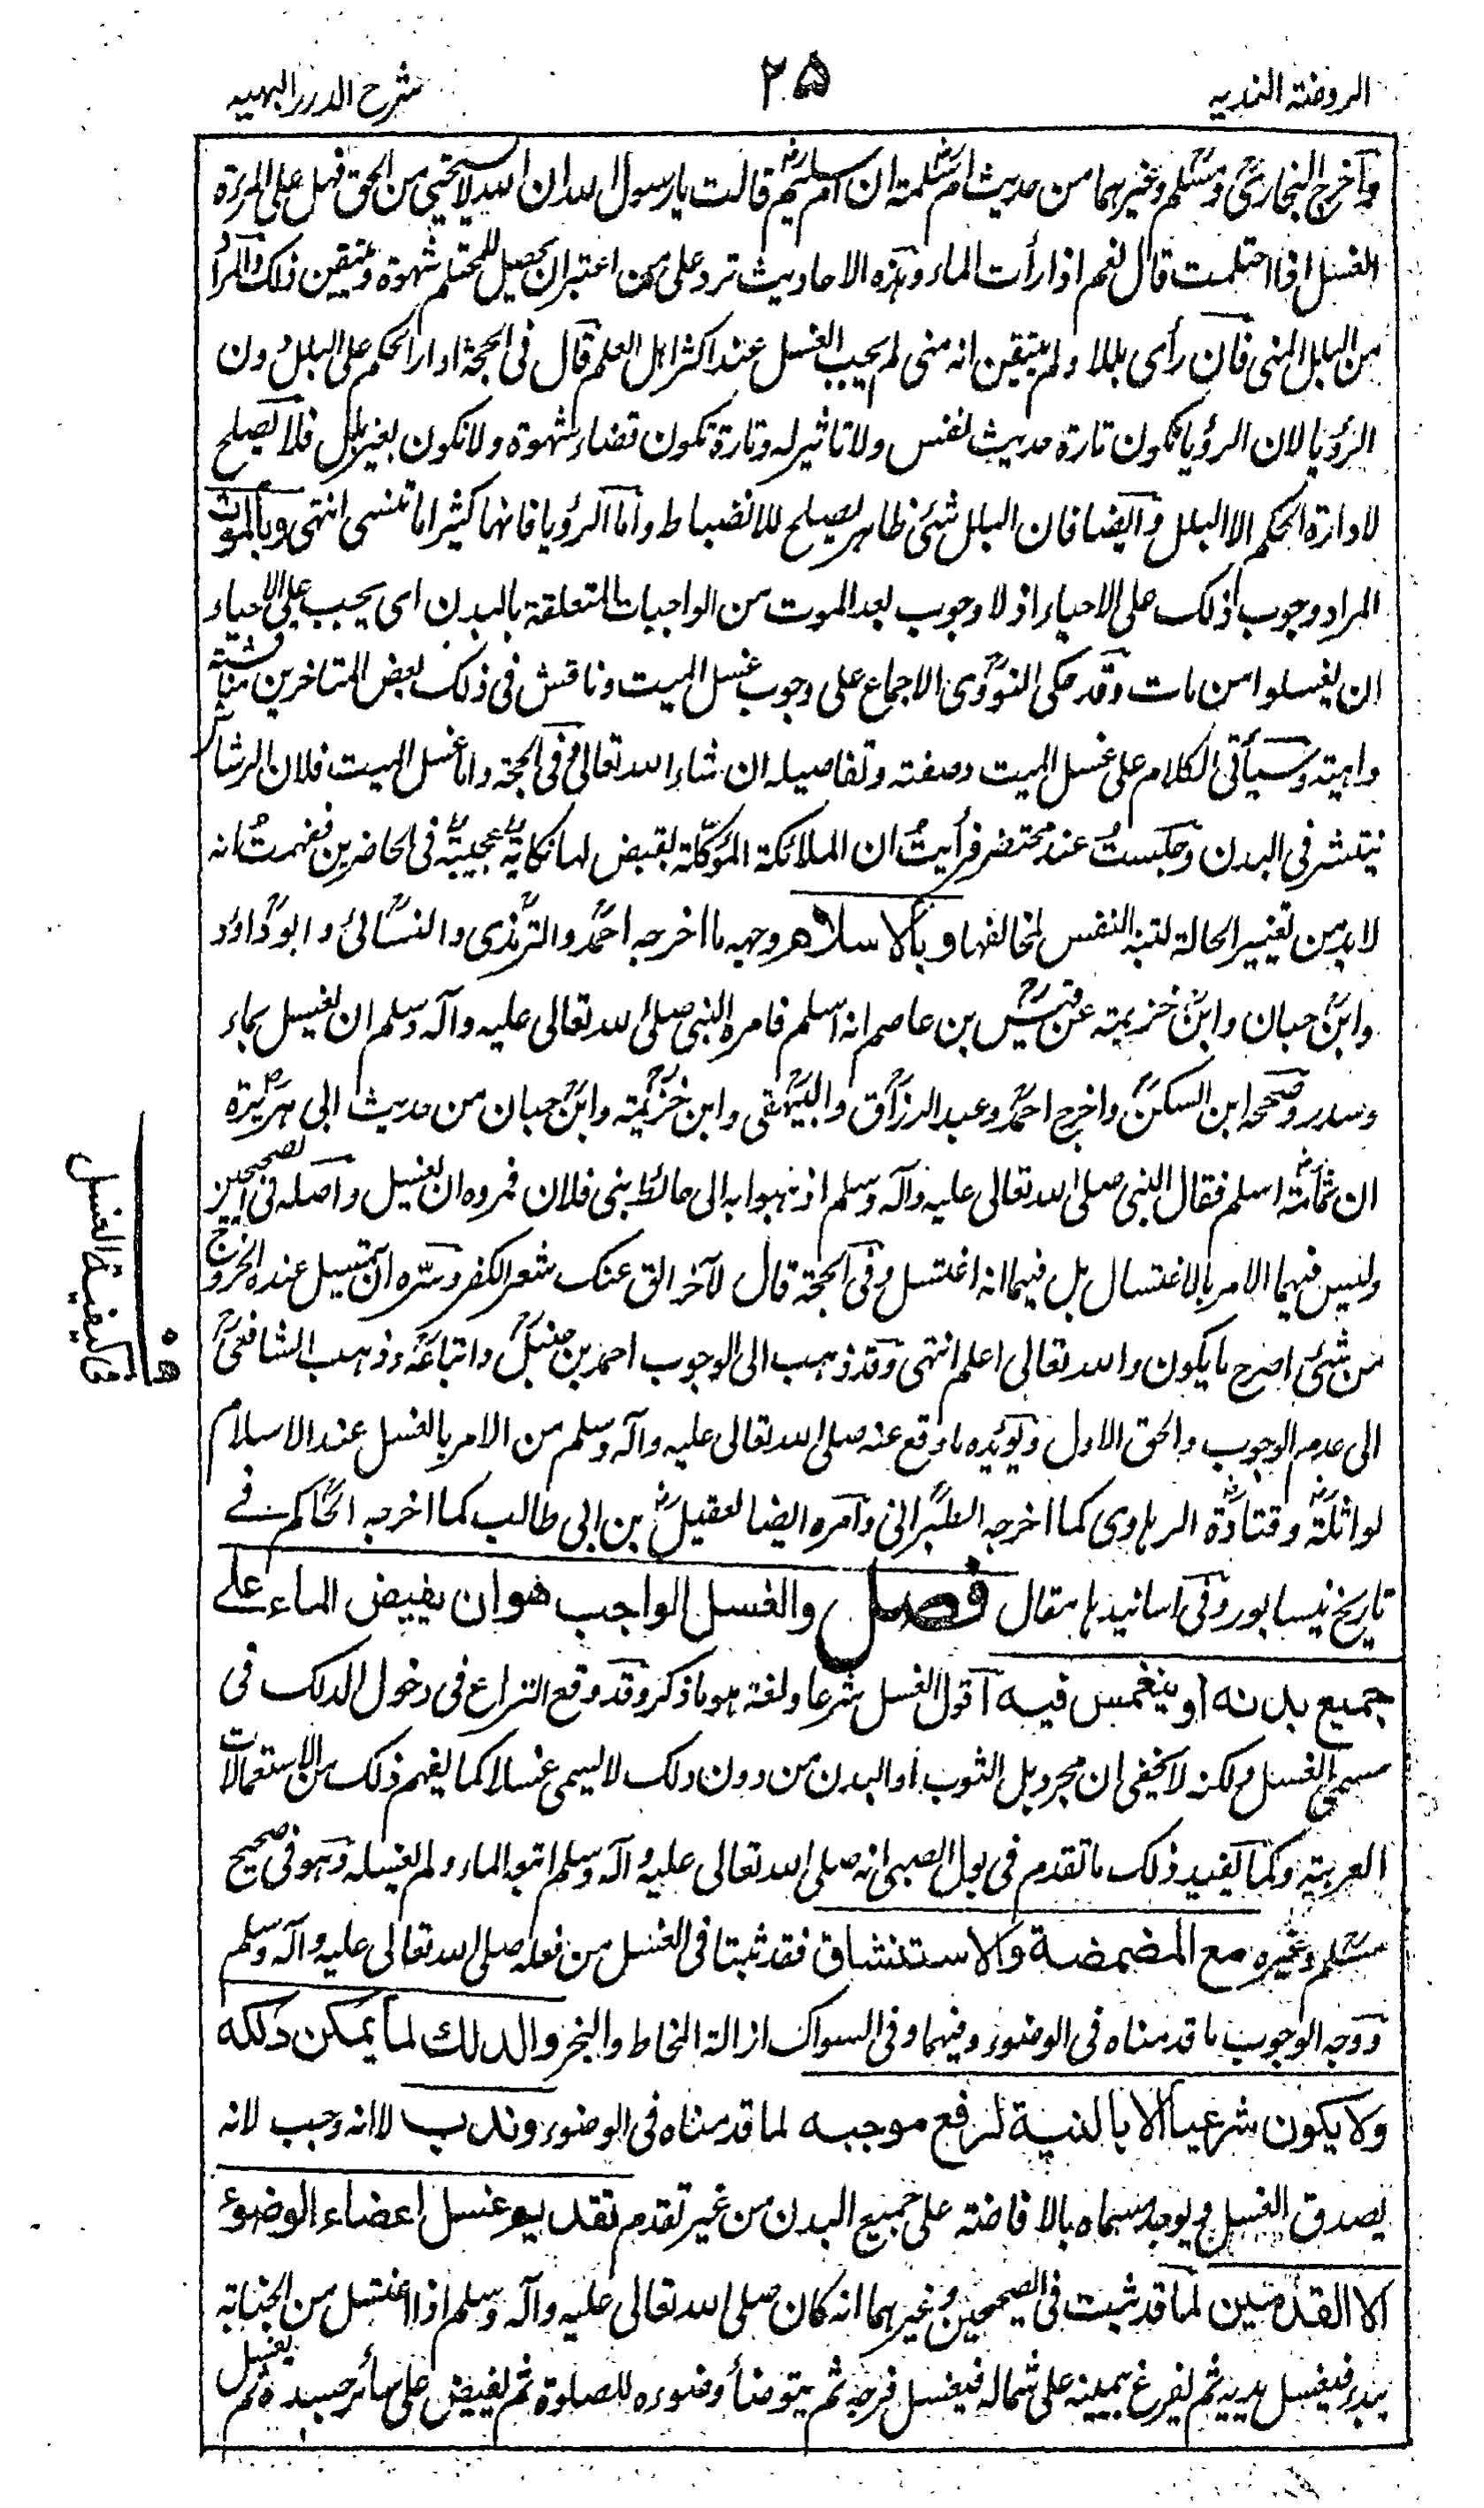 الروضة الندية
٢٥
شرح الدرر البهية
وأخرج البخاري ومسلم وغيرهما من حديث ام سلمة ان ام سليم قالت يا رسول الله ان الله لا يستحيي من الحق فهل على المرءة
الغسل اذا احتلمت قال نعم اذا رأت الماء وهذه الاحاديث ترد على من اعتبر ان يحصل للمحتلم شهوة ويتيقن ذلك والمراد
من البلل المني فان رأى بللا ولم يتيقن انه مني لم يجب الغسل عند اكثر اهل العلم قال في الحجة ادار الحكم على البلل دون
الرؤيا لان الرؤيا تكون تارة حديث نفس ولا تاثير له وتارة تكون قضاء شهوة ولا تكون بغير بلل فلا يصلح
لادارة الحكم الا البلل وايضا فان البلل شئ ظاهر يصلح للانضباط واما الرؤيا فانها كثيرا ما تنسى انتهى وبالموت
المراد وجوب ذلك على الاحياء اذ لا وجوب بعد الموت من الواجبات المتعلقة بالبدن اى يجب على الاحياء
ان يغسلوا من مات وقد حكى النووي الاجماع على وجوب غسل الميت وناقش في ذلك بعض المتاخرين مناقشة
واهية وسيأتي الكلام على غسل الميت وصفته وتفاصيله ان شاء الله تعالى وفي الحجة واما غسل الميت فلان الرشاش
ينتشر في البدن وجلست عند محتضر فرأيت ان الملائكة المؤكلة بقبض لها نكاية عجيبة في الحاضرين ففهمت انه
لا بد من تغيير الحالة لتنبه النفس لمخالفها وبالاسلام وجهه ما اخرجه احمد والترمذي والنسائي وابو داؤد
وابن حبان وابن خزيمة عن قيس بن عاصم انه اسلم فامره النبي صلى الله تعالى عليه وآله وسلم ان يغتسل بماء
وسدر وصححه ابن السكن واخرج احمد وعبد الرزاق والبيهقي وابن خزيمة وابن حبان من حديث ابى هريرة
ان ثمامة اسلم فقال النبي صلى الله تعالى عليه وآله وسلم اذهبوا به الى حائط بنى فلان فمروه ان يغتسل واصله في الصحيحين
وليس فيهما الامر بالاغتسال بل فيهما انه اغتسل وفي الحجة قال لآخر الق عنك شعر الكفر وسره ان يتمثل عنده الخروج
من شئ اصرح ما يكون والله تعالى اعلم انتهى وقد ذهب الى الوجوب احمد بن حنبل واتباعه وذهب الشافعي
الى عدم الوجوب والحق الاول ويؤيده ما وقع عنه صلى الله تعالى عليه وآله وسلم من الامر بالغسل عند الاسلام
لواثلة وقتادة الرهاوى كما اخرجه الطبراني وامره ايضا لعقيل بن ابى طالب كما اخرجه الحاكم في
تاريخ نيسابور وفي اسانيدها مقال فصل والغسل الواجب هو ان يفيض الماء على
جميع بدنه او ينغمس فيه اقول الغسل شرعا ولغة هو ما ذكر وقد وقع النزاع في دخول الدلك في
مسمى الغسل ولكنه لا يخفى ان مجرد بل الثوب او البدن من دون دلك لا يسمى غسلا كما يفهم ذلك من الاستعمالات
العربية وكما يفيد ذلك ما تقدم في بول الصبي انه صلى الله تعالى عليه وآله وسلم اتبعه الماء ولم يغسله وهو في صحيح
مسلم وغيره مع المضمضة والاستنشاق فقد ثبتا في الغسل من فعله صلى الله تعالى عليه وآله وسلم
ووجه الوجوب ما قدمناه في الوضوء وفيهما وفي السواك ازالة المخاط والبخر والدلك لما يمكن دلكه
ولا يكون شرعيا الا بالنية لرفع موجبه لما قدمناه في الوضوء وندب لا انه وجب لانه
يصدق الغسل ويوجد مسماه بالافاضة على جميع البدن من غير تقدم تقديم غسل اعضاء الوضوء
الا القدمين لما قد ثبت في الصحيحين وغيرهما انه كان صلى الله تعالى عليه وآله وسلم اذا اغتسل من الجنابة
يبدء فيغسل يديه ثم يفرغ بيمينه على شماله فيغسل فرجه ثم يتوضأ وضوءه للصلوة ثم يفيض على سائر جسده ثم يغسل
ف كيفية الغسل